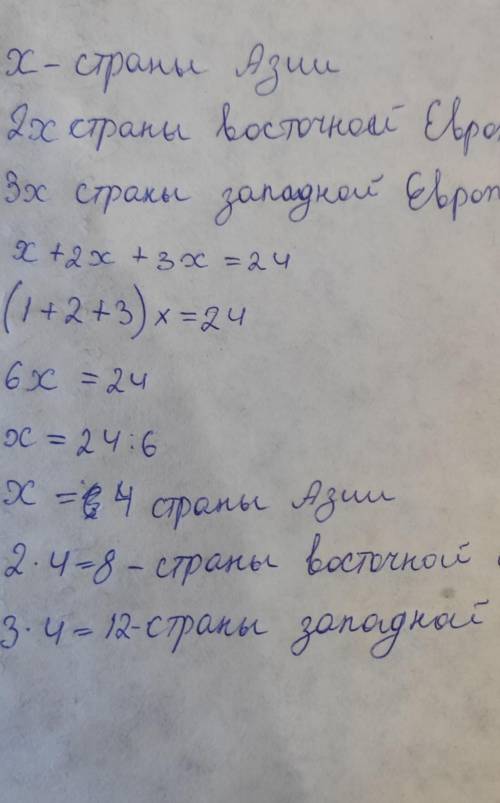 x - страны Азии
2x страны восточной Евро
3x страны западной Европ
x + 2x + 3x = 24
(1 + 2 + 3) x = 24
6x = 24
x = 24 : 6
x = 4 страны Азии
2 · 4 = 8 - страны восточной
3 · 4 = 12 - страны западной